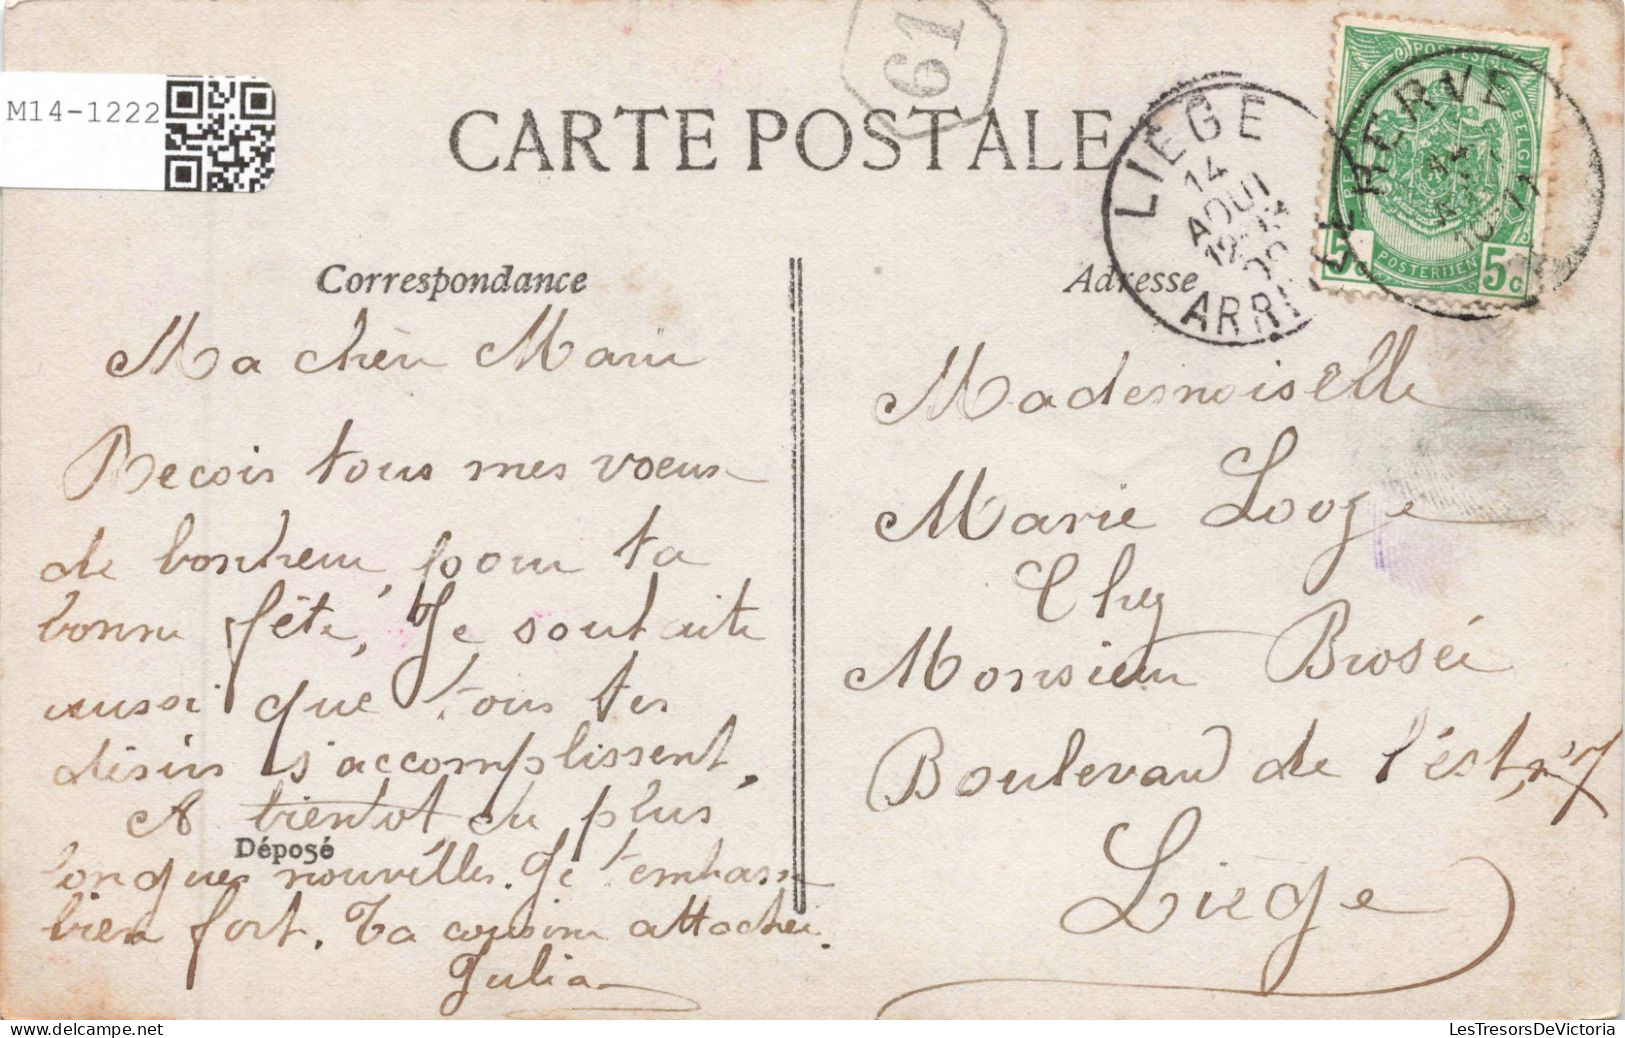 M14-1222
CARTE POSTALE
61
LIEGE
14
AOUT
12-13
09
ARRI
HERVE
10-11
POSTES
BELGI
POSTERIJEN
5c 5c
Correspondance
Adresse
Ma chère Marie
Recois tous mes voeux
de bonheur, pour ta
bonne fête, Je souhaite
aussi que tous tes
désirs s'accomplissent,
A bientôt du plus
Déposé
longues nouvelles. Je t'embrasse
bien fort. Ta cousine attachée.
Julia
Mademoiselle
Marie Looze
Chez
Monsieur Broséé
Boulevard de l'ést, n°7
Liège
LesTresorsDeVictoria
www.delcampe.net